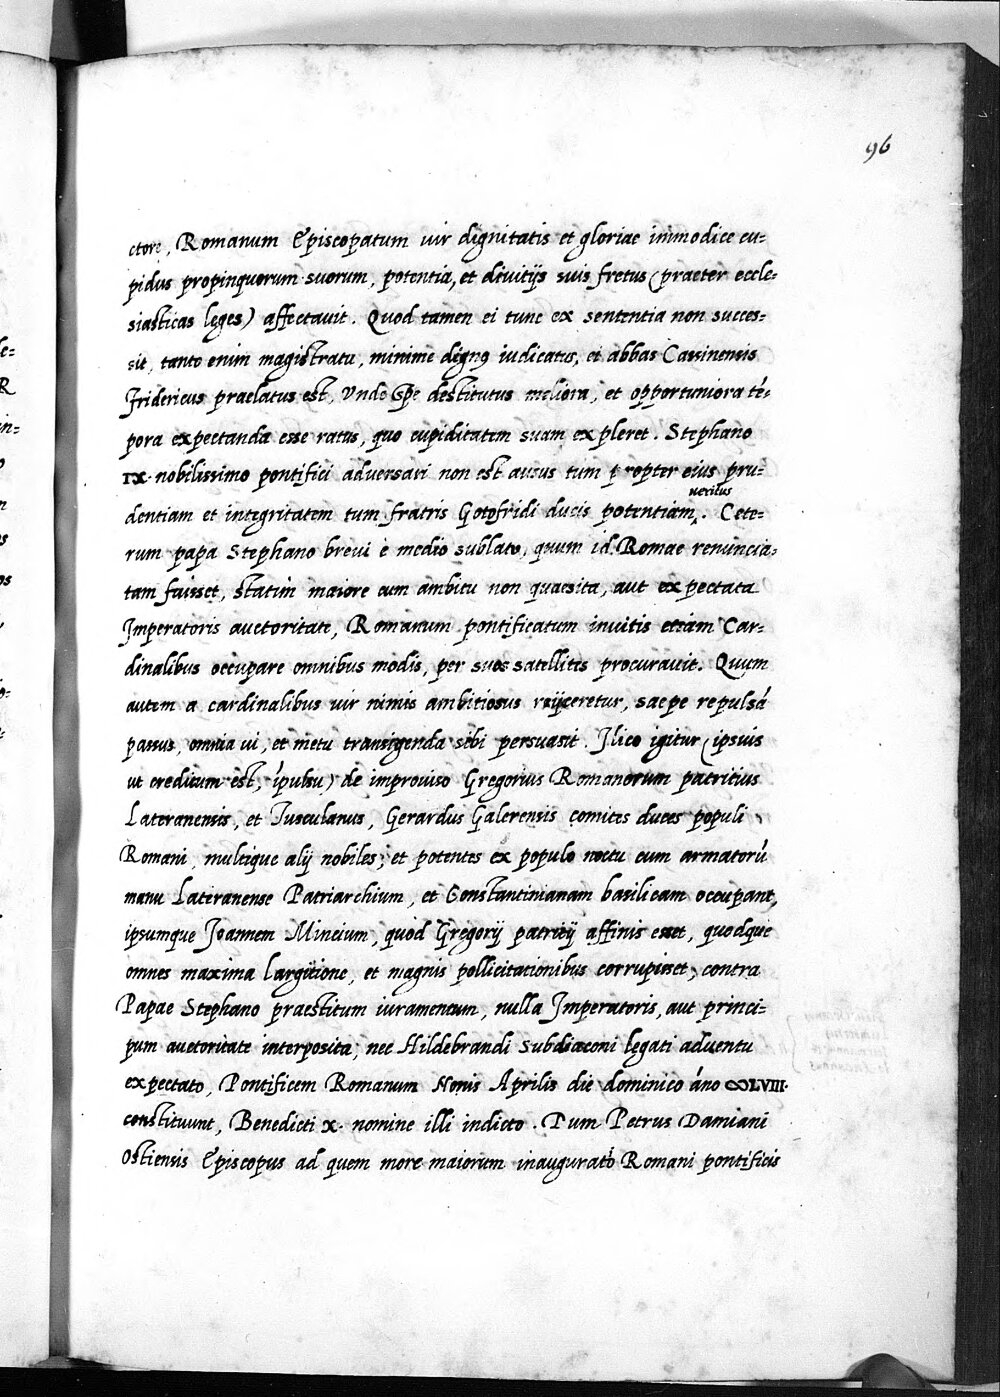 96
ctore, Romanum Episcopatum uir dignitatis et gloriae immodice cu=
pidus propinquorum suorum, potentia, et diuitijs suis fretus (praeter eccle=
siasticas leges) affectauit. Quod tamen ei tunc ex sententia non succes=
sit, tanto enim magistratu, minime dignus iudicatus, et abbas Cassinensis
Fridericus praelatus est, Vnde spe destitutus meliora, et opportuniora té=
pora expectanda esse ratus, quo cupiditatem suam expleret. Stephano
IX. nobilissimo pontifici aduersari non est ausus tum propter eius pru=
dentiam et integritatem tum fratris Gotofridi ducis potentiam ueritus. Cete=
rum papa Stephano breui è medio sublato, quum id Romae renuncia=
tam fuisset, statim maiore cum ambitu non quaesita, aut expectata
Imperatoris auctoritate, Romanum pontificatum inuitis etiam Car=
dinalibus occupare omnibus modis, per suos satellites procurauit. Quum
autem a cardinalibus uir nimis ambitiosus reijceretur, saepe repulsá
passus, omnia ui, et metu transigenda sibi persuasit. Ilico igitur (ipsius
ut creditum est, ípulsu) de improuiso Gregorius Romanorum patritius
Lateranensis, et Tusculanus, Gerardus Galerensis comites duces populi
Romani, multique alij nobiles, et potentes ex populo noctu cum armatorú
manu Lateranense Patriarchium, et Constantinianam basilicam occupant,
ipsumque Joannem Mincium, quod Gregorij patritij affinis esset, quodque
omnes maxima largitione, et magnis pollicitationibus corrupisset, contra
Papae Stephano praestitum iuramentum, nulla Imperatoris, aut princi=
pum auctoritate interposita, nec Hildebrandi Subdiaconi legati aduentu
expectato, Pontificem Romanum Nonis Aprilis die dominico áno ∞LVIII.
constituunt, Benedicti X. nomine illi indicto. Tum Petrus Damiani
Ostiensis Episcopus ad quem more maiorum inaugurató Romani pontificis